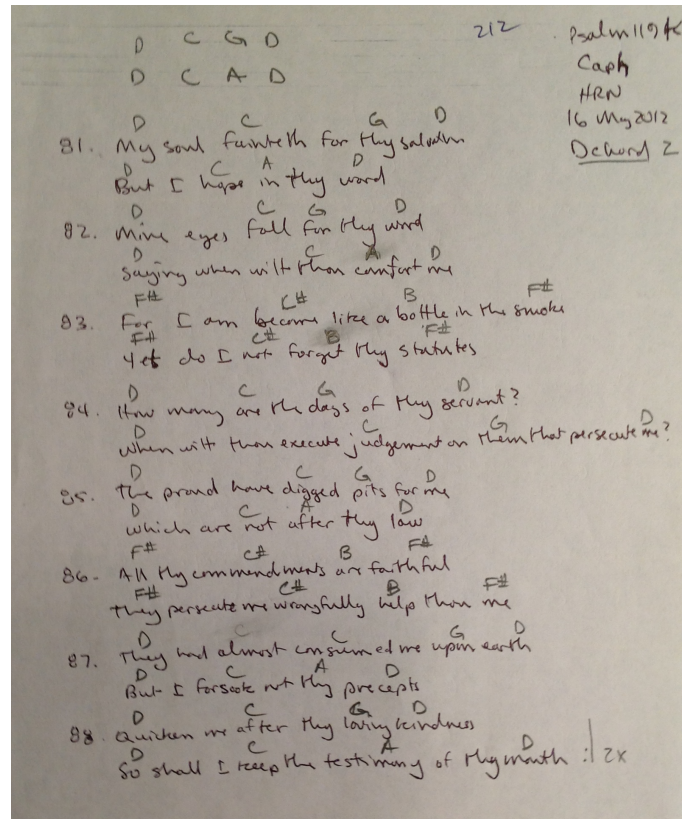 212
Psalm 119
Caph
HRN
16 May 2012
Dchord 2
D C G D
D C A D
D C G D
81. My soul fainteth for thy salvation
D C A D
But I hope in thy word
D C G D
82. Mine eyes fail for thy word
D C A D
Saying when wilt thou comfort me
F# C# B F#
83. For I am become like a bottle in the smoke
F# C# B F#
Yet do I not forget thy statutes
D C G D
84. How many are the days of thy servant?
D C G D
When wilt thou execute judgement on them that persecute me?
D C G D
85. The proud have digged pits for me
D C A D
which are not after thy law
F# C# B F#
86. All thy commendments are faithful
F# C# B F#
They persecute me wrongfully help thou me
D C C G D
87. They had almost consumed me upon earth
D C A D
But I forsook not thy precepts
D C G D
88. Quicken me after thy loving kindness
D C A D
So shall I keep the testimony of thy mouth :| 2x